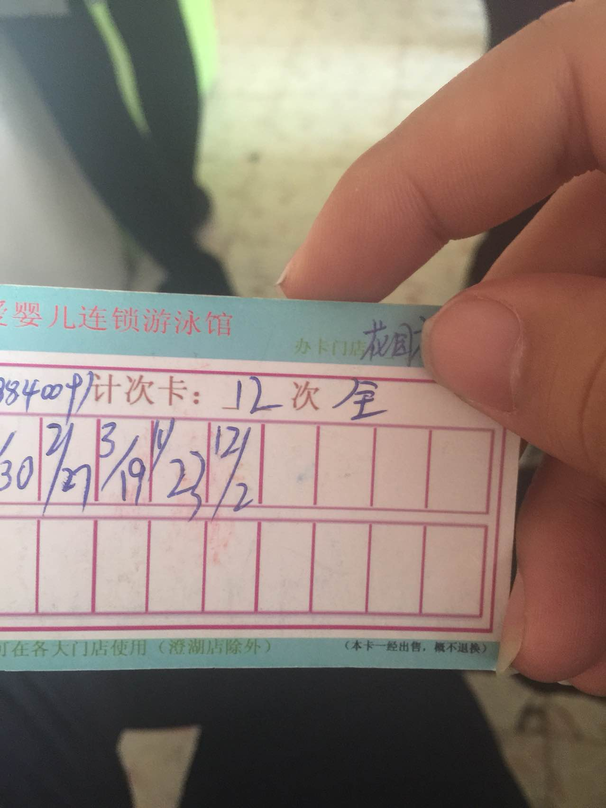 婴儿连锁游泳馆
办卡门店 花园
计次卡: 12 次 全
30 2/27 3/19 11/23 12/2
可在各大门店使用（澄湖店除外）
（本卡一经出售，概不退换）